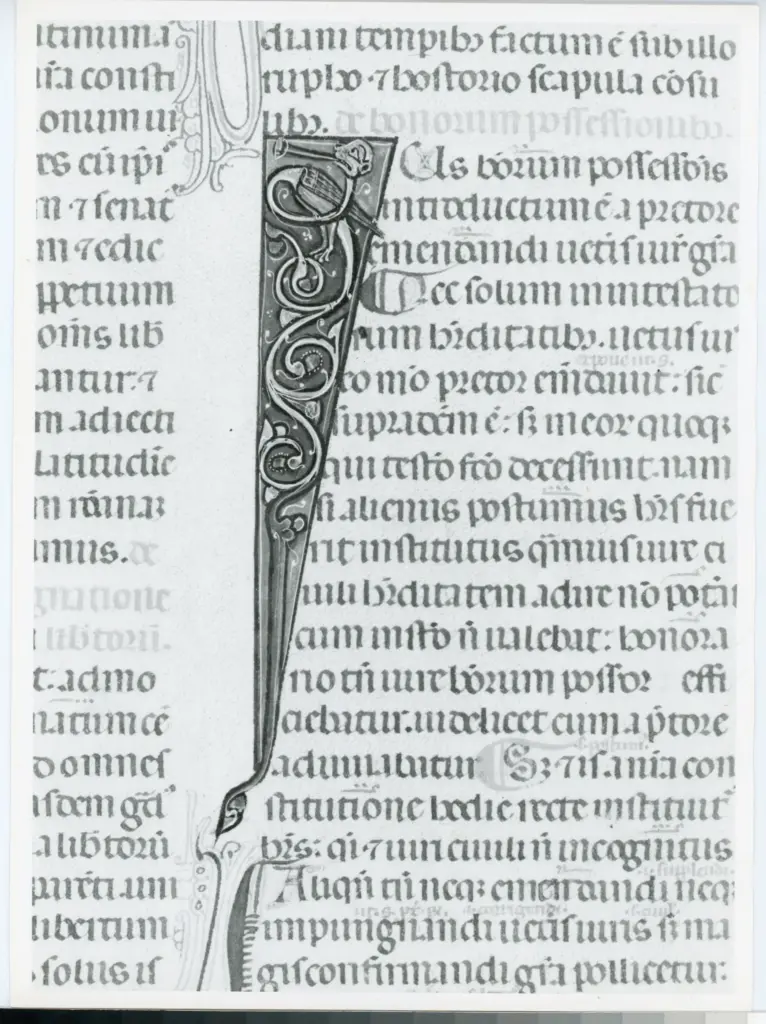 itinima
ir̄a consti
onum ui
res cū ip̄i
m ⁊ senat̄
m ⁊ edic
ppetuum
om̄s lib̄
antur: ⁊
m adiecti
latitudīe
m rōmar
imus. de
gnatione
libtorū.
t: admo
natum cē
do omnes
isdem gd̄
a libtorū
parēti aut
libertum
solus is
diani tempibꝫ factum ē sub illo
ruplo ⁊ hostorio scapula cōsu
libꝫ. de bonorum possessionibꝫ.
Ius bōrum possessōis
introductum ē a pretore
emendandi ueťis iur̄ gr̄a
Nec solum in intestato
rum hr̄ditatibꝫ. uetus iur̄
eo mō pretor em̄dauit: sic
supradcm̄ ē: sꝫ in eor quoqꝫ
qui testō fcō decesserunt. nam
si alienus postumus hr̄s fue
rit institutus qm̄uis iure ci
uili hr̄ditatem adire nō potat̄
cum iustō n̄ ualebat: honora
rio tn̄ iure bōrum possor effi
ciebatur. uidelicet cum a p̄tore
adiuuabatur Sꝫ ⁊ is a nr̄a con
stitutione hodie recte instituit̄
hr̄s: qī ⁊ iuri ciuili n̄ incognitus
Aliqn̄ tn̄ neqꝫ emendandi neqꝫ
impungnandi uet̄is iuris sꝫ ma
gis confirmandi gr̄a pollicetur: